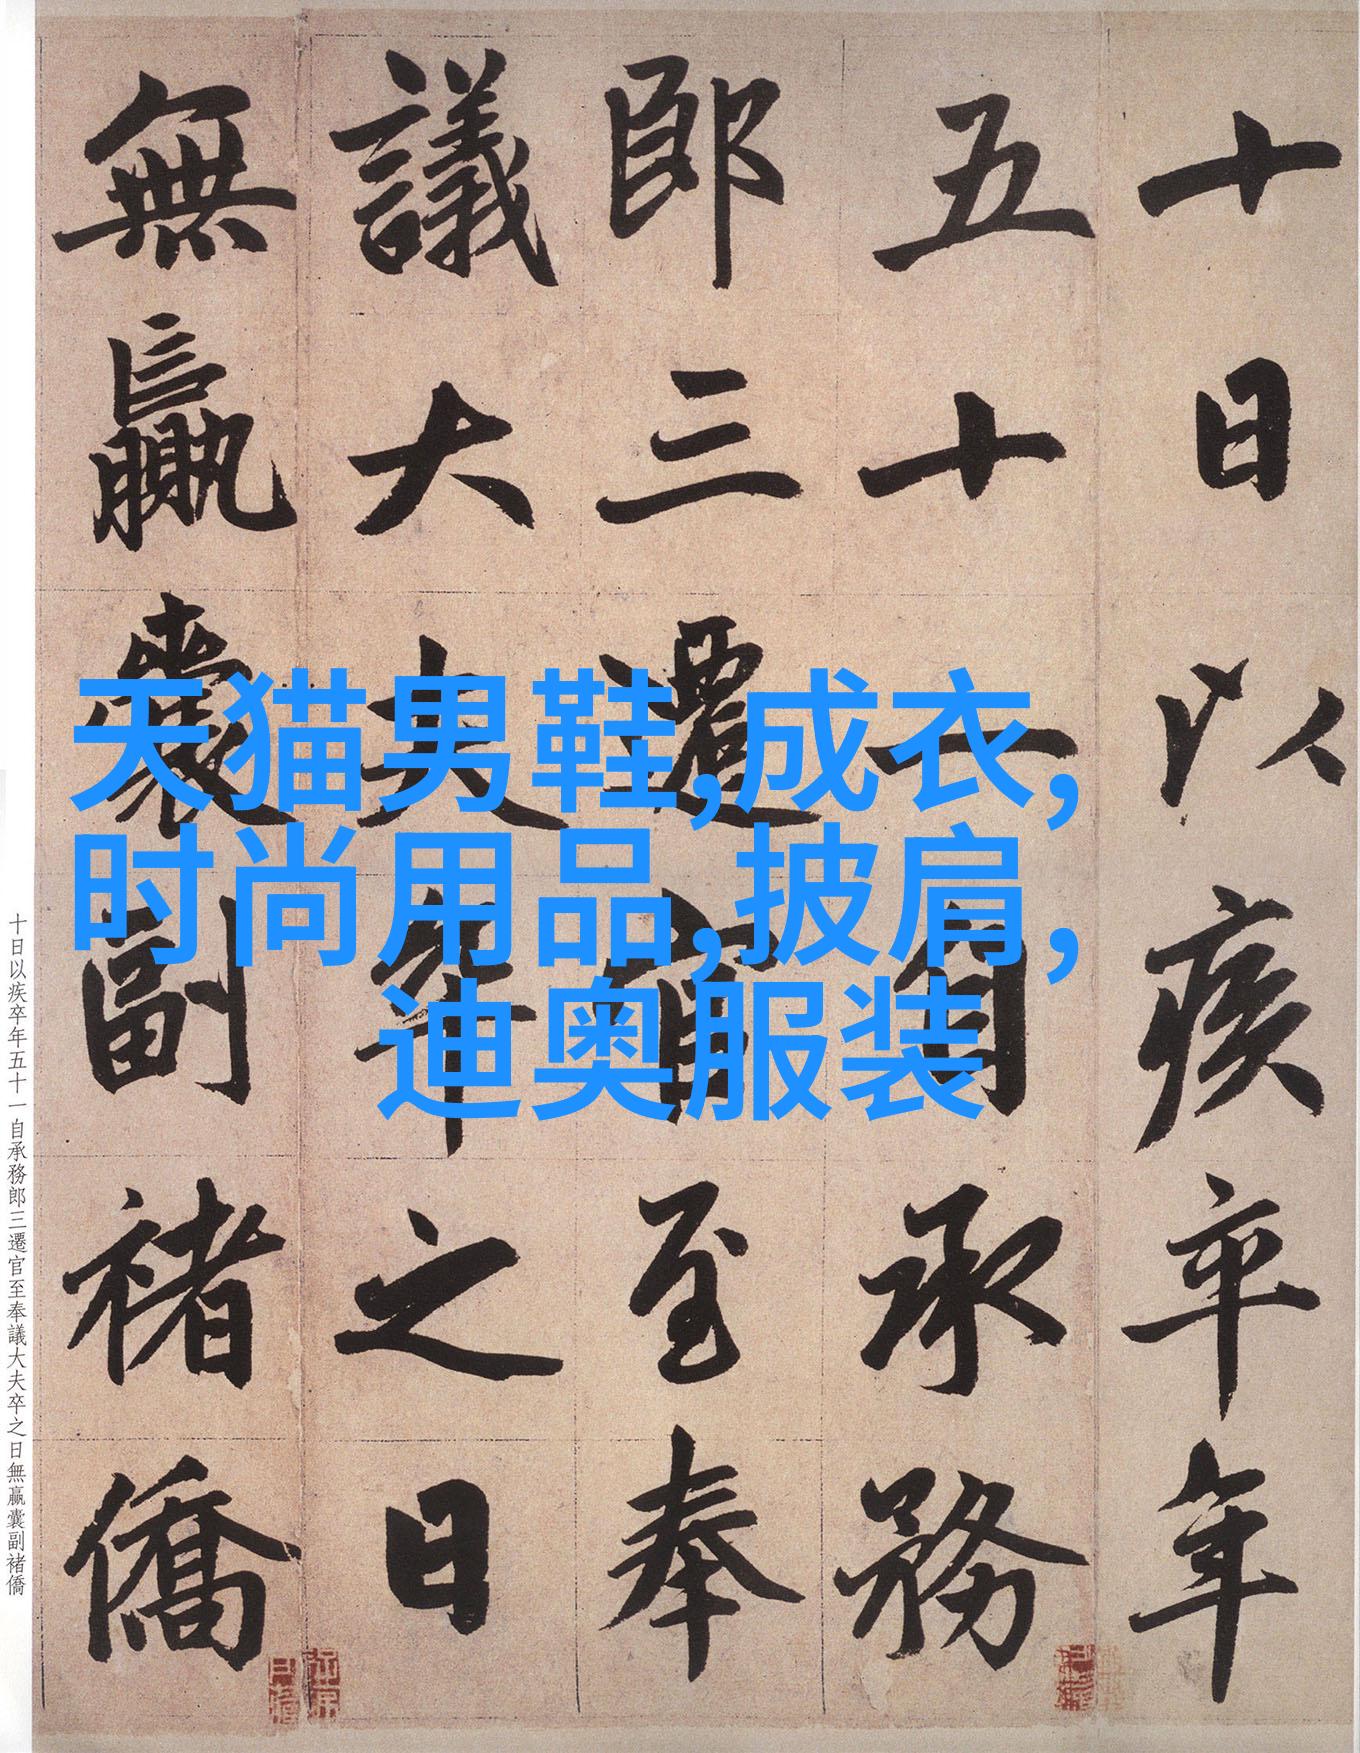 十日以疾卒年
五十一自承務
郎三遷官至奉
議大夫卒之日
無贏囊副褚僑
天猫男鞋,成衣,
时尚用品,披肩,
迪奥服装
十日以疾卒年五十一自承務郎三遷官至奉議大夫卒之日無贏囊副褚僑